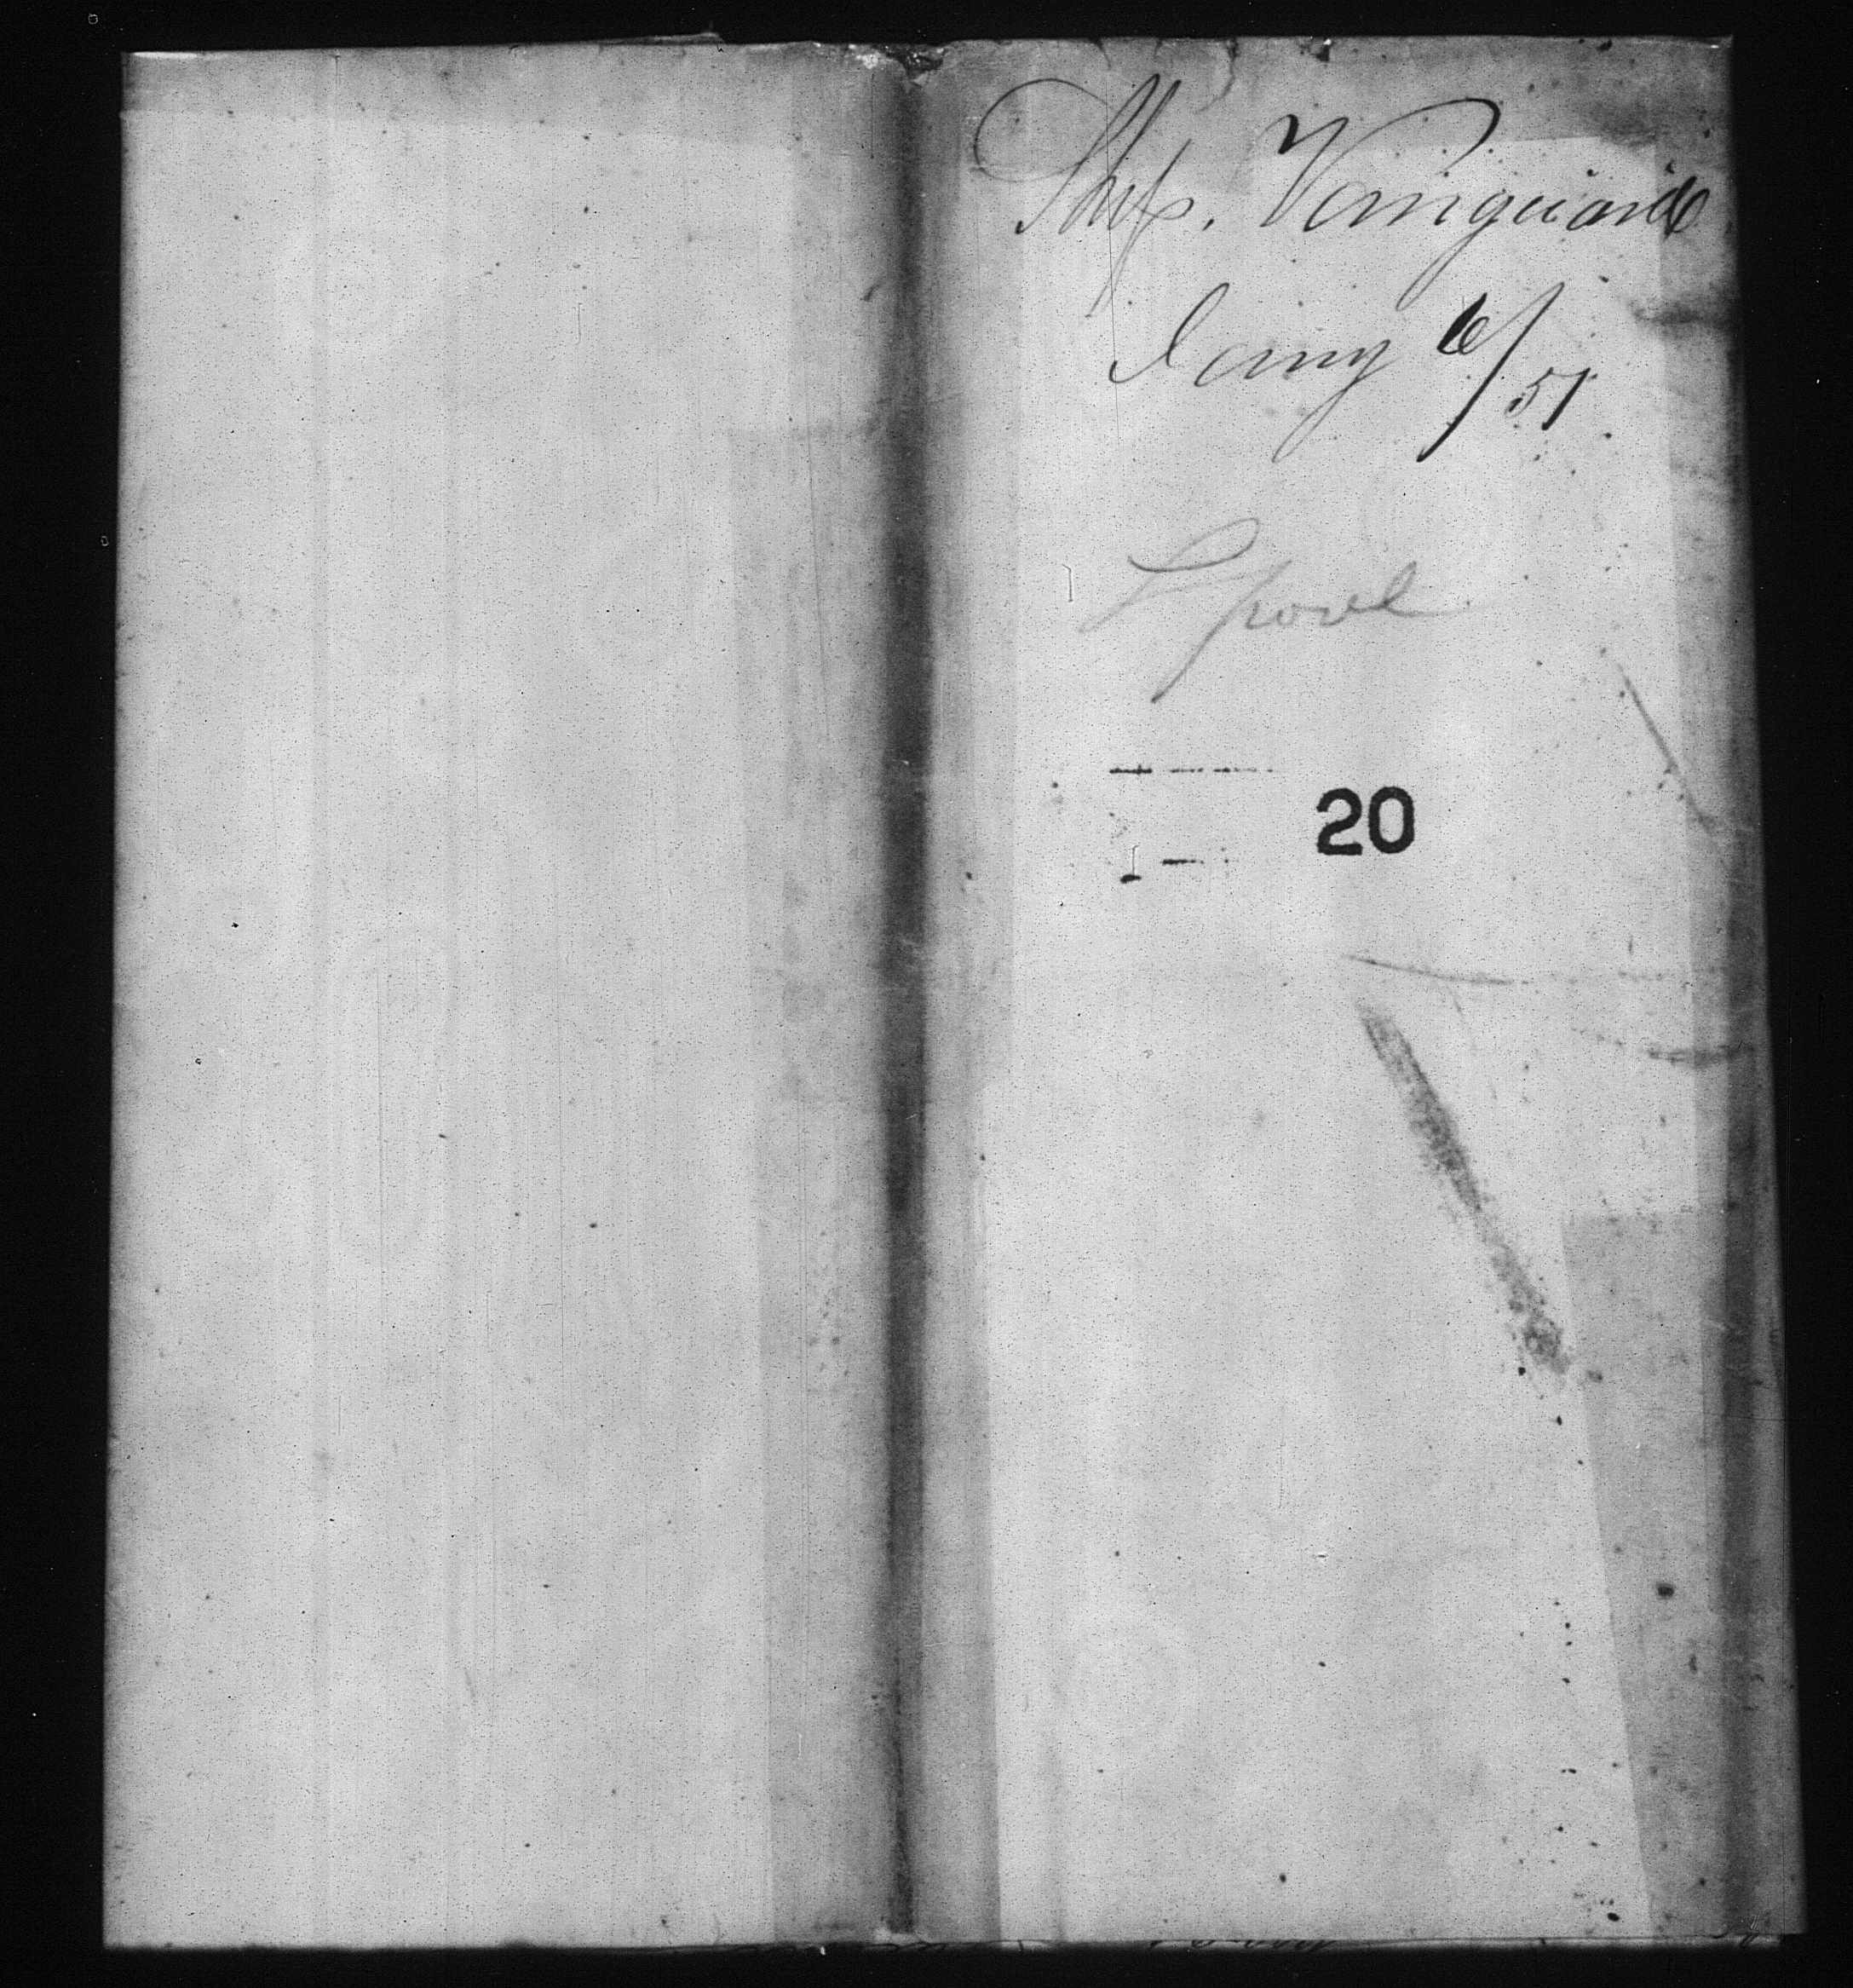 Ship. Vanguard
Jany 6/51
Lpool
20